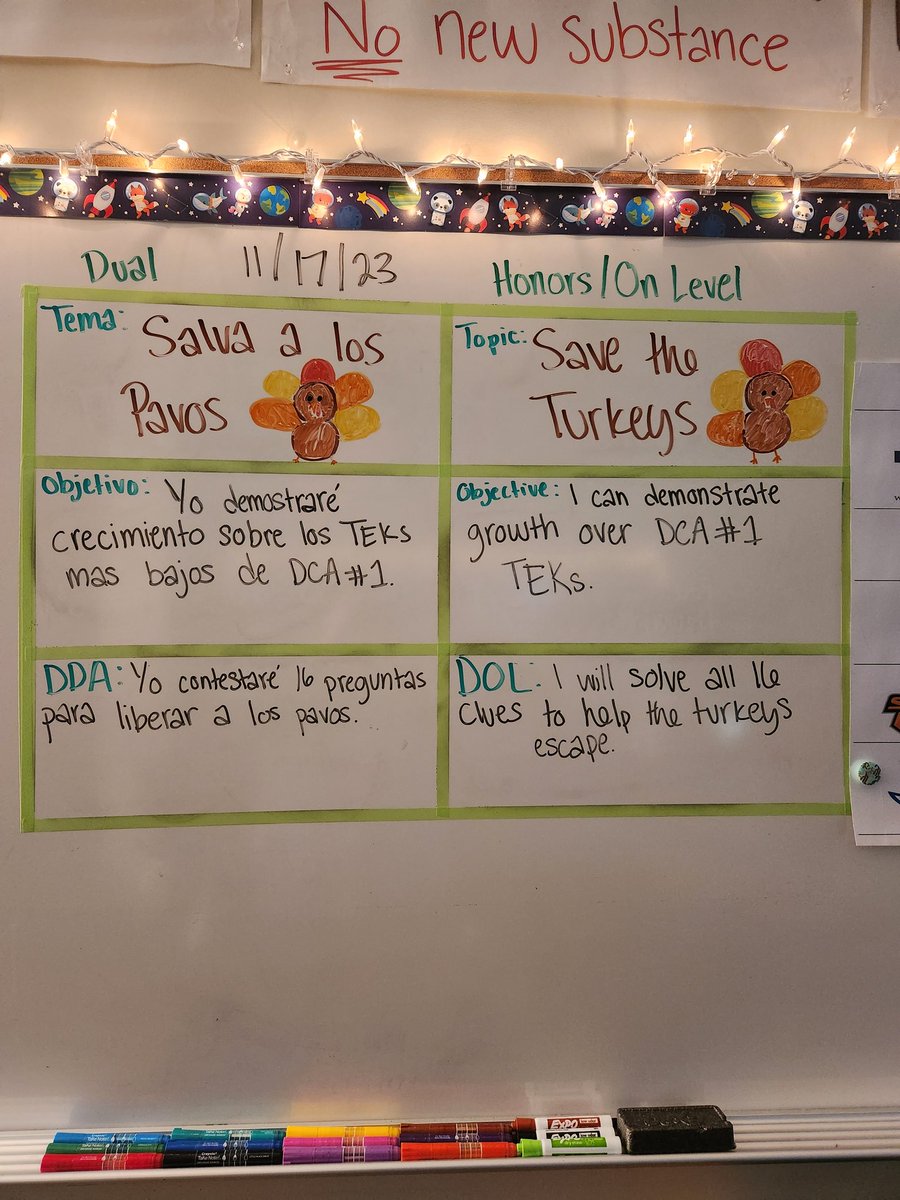 No new substance
Dual 11/17/23 Honors/On Level
Tema: Salva a los
Pavos
Topic: Save the
Turkeys
Objetivo: Yo demostraré
crecimiento sobre los TEKs
mas bajos de DCA#1.
Objective: I can demonstrate
growth over DCA#1
TEKs.
DDA: Yo contestaré 16 preguntas
para liberar a los pavos.
DOL: I will solve all 16
clues to help the turkeys
escape.
EXPO
EXPO